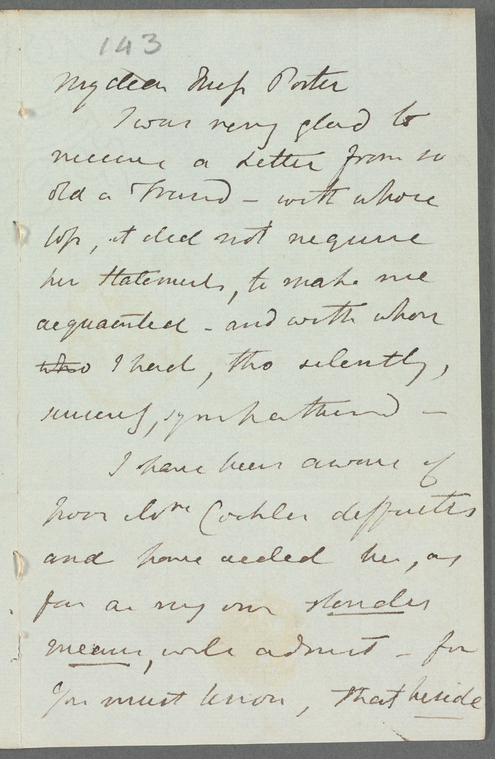 143
My dear Miss Porter
I was very glad to
receive a Letter from so
old a Friend – with whose
loss, it did not require
her Statements, to make me
acquainted – and with whom
who I had, tho silently,
sincerely, sympathised –
I have been aware of
poor Mrs Cockles difficulties
and have aided her, as
far as my own slender
means, will admit – for
you must know, that beside